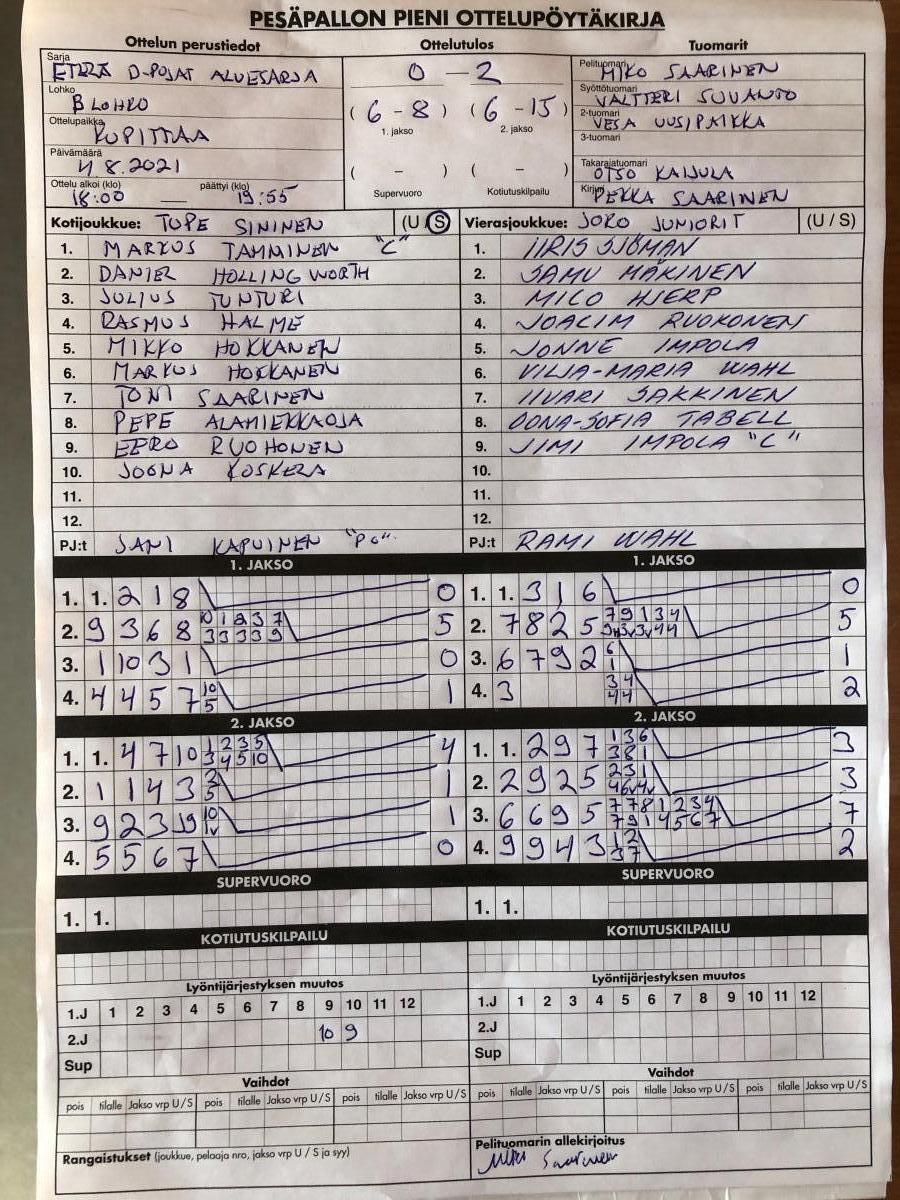 PESÄPALLON PIENI OTTELUPÖYTÄKIRJA
Ottelun perustiedot Ottelutulos Tuomarit
Sarja ETELÄ D-POJAT ALUESARJA
Lohko B LOHKO
Ottelupaikka KUPITTAA
Päivämäärä 4.8.2021
Ottelu alkoi (klo) 18:00 — päättyi (klo) 19:55
0 – 2
(6 – 8) (6 – 15)
1. jakso 2. jakso
( – ) ( – )
Supervuoro Kotiutuskilpailu
Pelituomari MIKO SAARINEN
Syöttötuomari VALTTERI SUVANTO
2-tuomari VESA UUSIPAIKKA
3-tuomari
Takarajatuomari OTSO KAIJULA
Kirjuri PEKKA SAARINEN
Kotijoukkue: TUPE SININEN (U / S)
1. MARKUS TAMMINEN "C"
2. DANIEL HOLLINGWORTH
3. JULIUS TUNTURI
4. RASMUS HALME
5. MIKKO HOKKANEN
6. MARKUS HOKKANEN
7. TONI SAARINEN
8. PEPE ALAMIEKKAOJA
9. EERO RUOHONEN
10. JOONA KOSKELA
11.
12.
PJ:t JANI KAPUINEN
Vierasjoukkue: JOKO JUNIORIT (U / S)
1. IIRIS SJÖMAN
2. SAMU MÄKINEN
3. MICO HJERP
4. JOACIM RUOKONEN
5. JONNE IMPOLA
6. VILJA-MARIA WAHL
7. IIVARI SAKKINEN
8. OONA-SOFIA TABELL
9. JIMI IMPOLA "C"
10.
11.
12.
PJ:t RAMI WAHL
1. JAKSO
1. 1. 2 1 8 0
2. 9 3 6 8 10 1 2 3 7 5
3 3 3 3 9
3. 1 10 3 1 0
4. 4 4 5 7 10 1
5
1. JAKSO
1. 1. 3 1 6 0
2. 7 8 2 5 7 9 1 3 4 5
3. 6 7 9 2 6 1
1
4. 3 3 4 2
4 4
2. JAKSO
1. 1. 4 7 10 1 2 3 5 4
3 4 5 10
2. 1 1 4 3 2 1
5
3. 9 2 3 10 1
1v
4. 5 5 6 7 0
2. JAKSO
1. 1. 2 9 7 1 3 6 3
3 8 1
2. 2 9 2 5 2 3 1 3
3. 6 6 9 5 7 7 8 1 2 3 4 7
7 9 1 4 5 6 7
4. 9 9 4 3 1 2 2
3 7
SUPERVUORO
1. 1.
SUPERVUORO
1. 1.
KOTIUTUSKILPAILU
KOTIUTUSKILPAILU
Lyöntijärjestyksen muutos
1.J 1 2 3 4 5 6 7 8 9 10 11 12
2.J 10 9
Sup
Lyöntijärjestyksen muutos
1.J 1 2 3 4 5 6 7 8 9 10 11 12
2.J
Sup
Vaihdot
pois tilalle Jakso vrp U / S pois tilalle Jakso vrp U / S pois tilalle Jakso vrp U / S
Vaihdot
pois tilalle Jakso vrp U / S pois tilalle Jakso vrp U / S pois tilalle Jakso vrp U / S
Rangaistukset (joukkue, pelaaja nro, jakso vrp U / S ja syy)
Pelituomarin allekirjoitus
Miko Saarinen